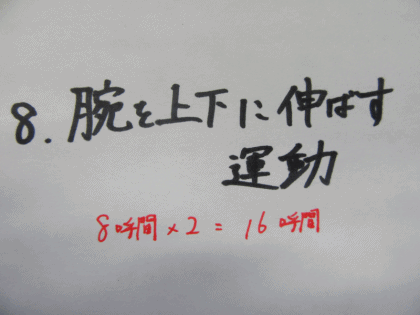 8.腕を上下に伸ばす
運動
8呼間×2=16呼間